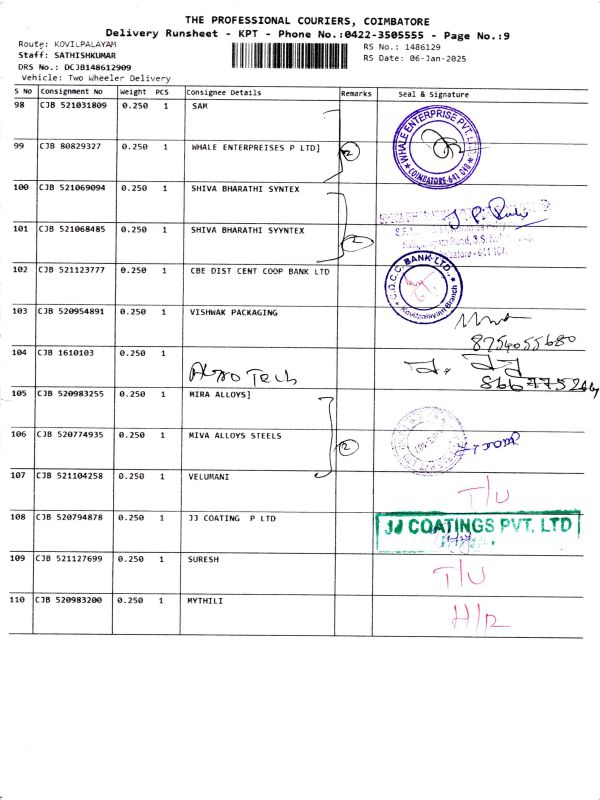 THE PROFESSIONAL COURIERS, COIMBATORE
Delivery Runsheet - KPT - Phone No.:0422-3505555 - Page No.:9
Route: KOVILPALAYAM RS No.: 1486129
Staff: SATHISHKUMAR RS Date: 06-Jan-2025
DRS No.: DCJB148612909
Vehicle: Two Wheeler Delivery
S No Consignment No Weight PCS Consignee Details Remarks Seal & Signature
98 CJB 521031809 0.250 1 SAM
WHALE ENTERPRISE PVT. LTD
COIMBATORE-641 048
99 CJB 80829327 0.250 1 WHALE ENTERPREISES P LTD] 2
100 CJB 521069094 0.250 1 SHIVA BHARATHI SYNTEX
101 CJB 521068485 0.250 1 SHIVA BHARATHI SYYNTEX 2
102 CJB 521123777 0.250 1 CBE DIST CENT COOP BANK LTD
C.D.C.C. BANK LTD.,
Kovilpalayam Branch
103 CJB 520954891 0.250 1 VISHWAK PACKAGING
8754055680
104 CJB 1610103 0.250 1
105 CJB 520983255 0.250 1 MIRA ALLOYS]
106 CJB 520774935 0.250 1 MIVA ALLOYS STEELS 2
107 CJB 521104258 0.250 1 VELUMANI T/U
108 CJB 520794878 0.250 1 JJ COATING P LTD JJ COATINGS PVT. LTD
109 CJB 521127699 0.250 1 SURESH T/U
110 CJB 520983200 0.250 1 MYTHILI H/R